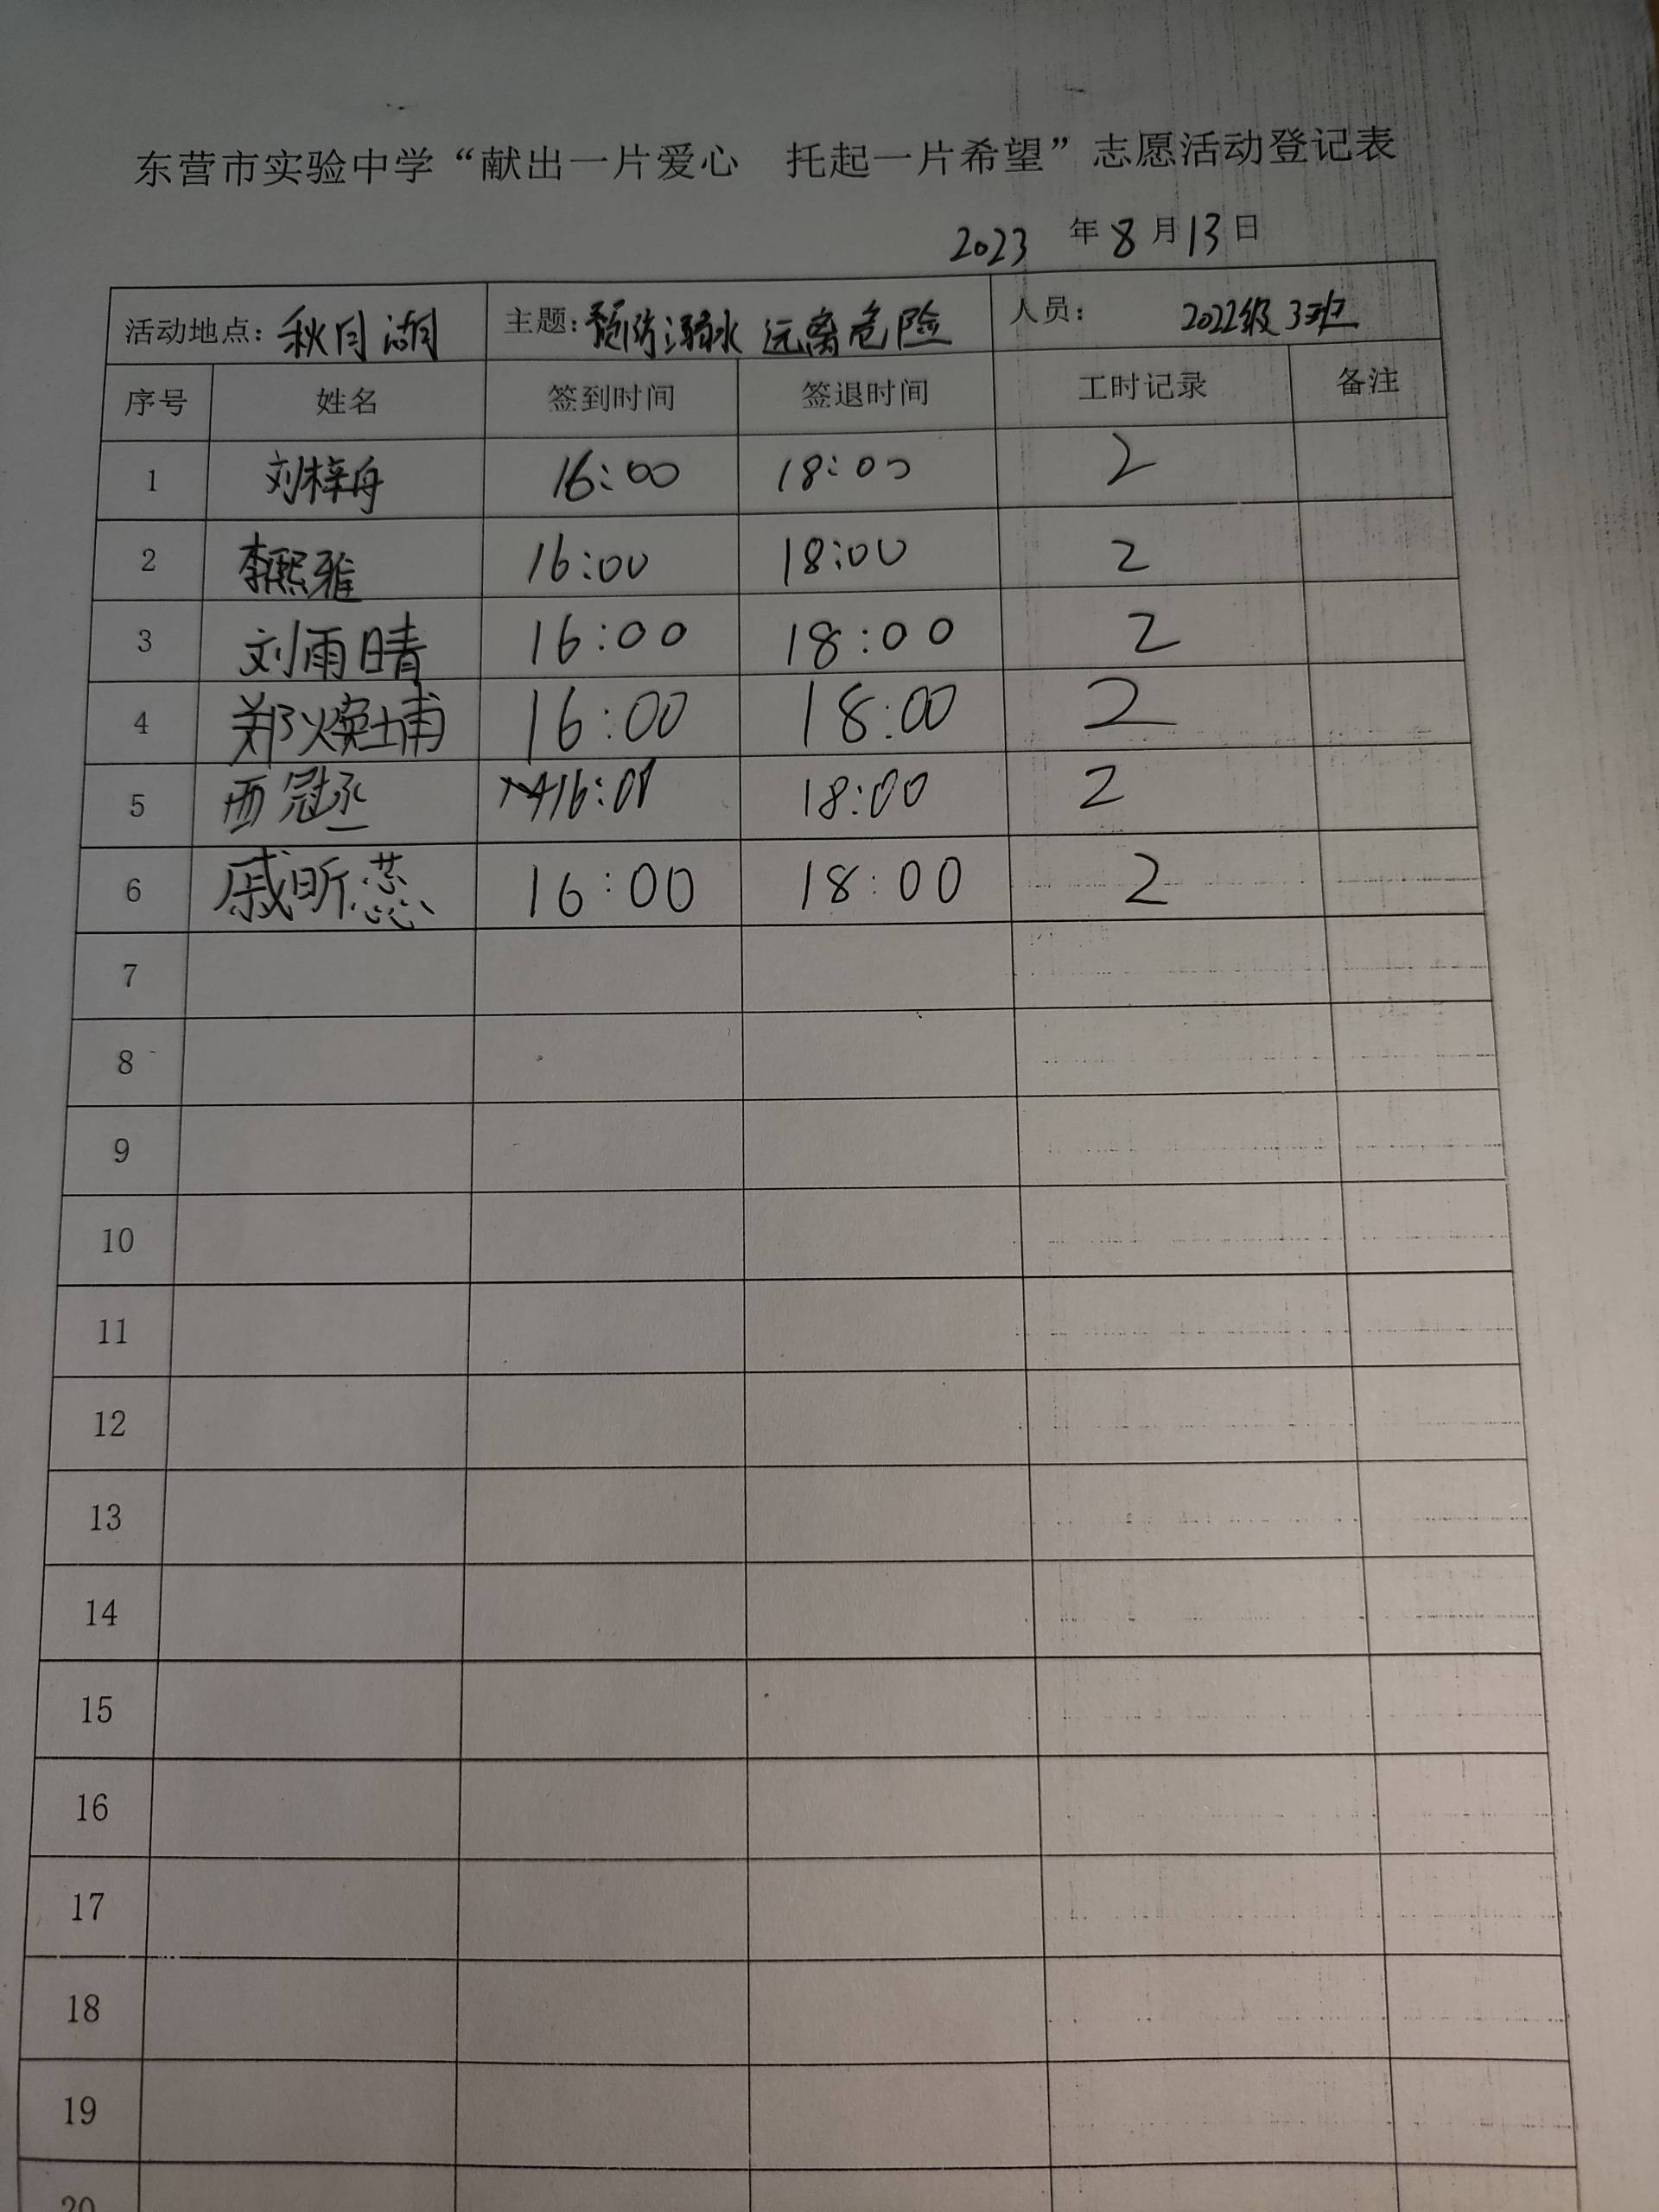 东营市实验中学“献出一片爱心 托起一片希望”志愿活动登记表
2023 年 8 月 13 日
活动地点：秋月湖 主题：预防溺水 远离危险 人员： 2022级3班
序号 姓名 签到时间 签退时间 工时记录 备注
1 刘梓舟 16:00 18:00 2
2 李熙雅 16:00 18:00 2
3 刘雨晴 16:00 18:00 2
4 郑焕埔 16:00 18:00 2
5 西冠丞 16:00 18:00 2
6 戚昕蕊 16:00 18:00 2
7
8
9
10
11
12
13
14
15
16
17
18
19
20